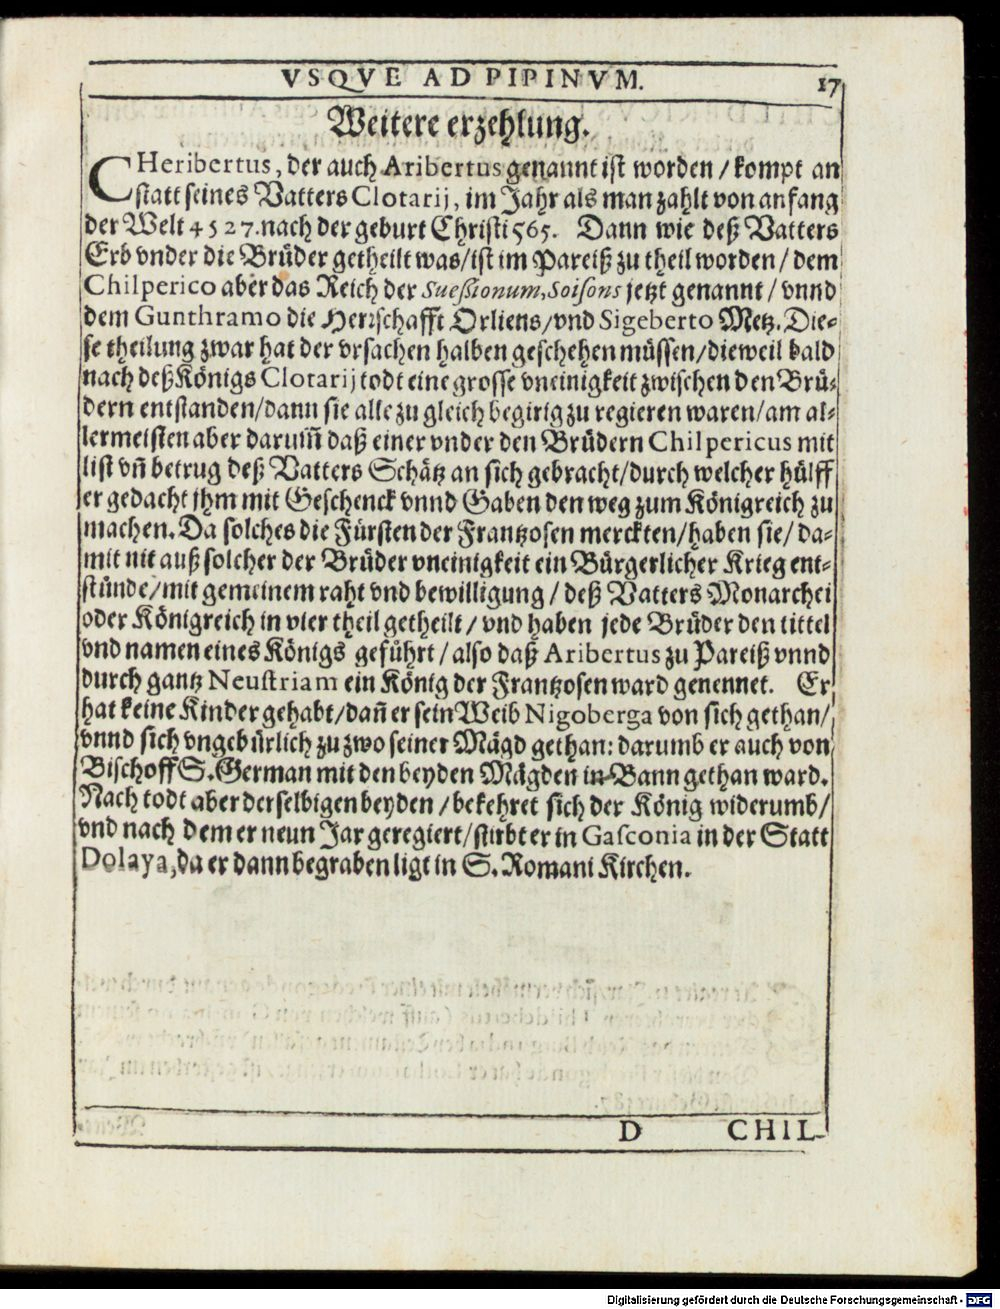 VSQVE AD PIPINVM. 17
Weitere erzehlung.
CHeribertus, der auch Aribertus genannt ist worden / kompt an
statt seines Vatters Clotarij, im Jahr als man zahlt von anfang
der Welt 4527. nach der geburt Christi 565. Dann wie deß Vatters
Erb vnder die Brüder getheilt was/ist im Pareiß zu theil worden / dem
Chilperico aber das Reich der Sueßionum, Soisons jetzt genannt / vnnd
dem Gunthramo die Herrschafft Orliens/vnd Sigeberto Metz. Die-
se theilung zwar hat der vrsachen halben geschehen müssen/dieweil bald
nach deß Königs Clotarij todt eine grosse vneinigkeit zwischen den Brü-
dern entstanden/dann sie alle zu gleich begirig zu regieren waren/am al-
lermeisten aber darum̃ daß einer vnder den Brüdern Chilpericus mit
list vñ betrug deß Vatters Schätz an sich gebracht/durch welcher hülff
er gedacht jhm mit Geschenck vnnd Gaben den weg zum Königreich zu
machen. Da solches die Fürsten der Frantzosen merckten/haben sie/ da-
mit nit auß solcher der Brüder vneinigkeit ein Bürgerlicher Krieg ent-
stünde/mit gemeinem raht vnd bewilligung / deß Vatters Monarchei
oder Königreich in vier theil getheilt / vnd haben jede Brüder den tittel
vnd namen eines Königs geführt / also daß Aribertus zu Pareiß vnnd
durch gantz Neustriam ein König der Frantzosen ward genennet. Er
hat keine Kinder gehabt/dañ er sein Weib Nigoberga von sich gethan/
vnnd sich vngebürlich zu zwo seiner Mägd gethan: darumb er auch von
Bischoff S. German mit den beyden Mägden in Bann gethan ward.
Nach todt aber derselbigen beyden / bekehret sich der König widerumb/
vnd nach dem er neun Jar geregiert/stirbt er in Gasconia in der Statt
Dolaya, da er dann begraben ligt in S. Romani Kirchen.
D CHIL-
Digitalisierung gefördert durch die Deutsche Forschungsgemeinschaft - DFG